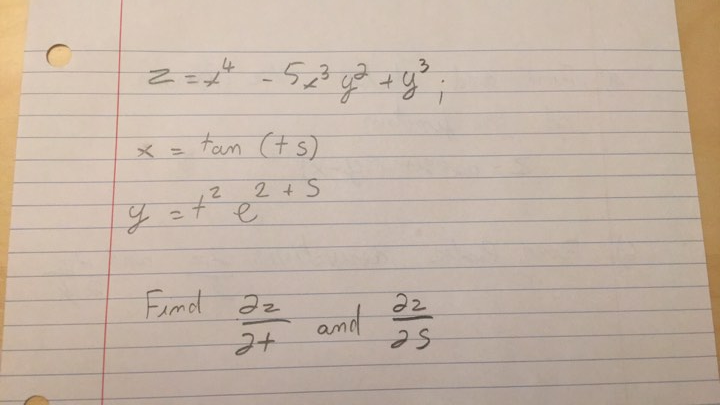 z = x⁴ - 5x³y² + y³;
x = tan (ts)
y = t² e^{2 + s}
Find ∂z/∂t and ∂z/∂s